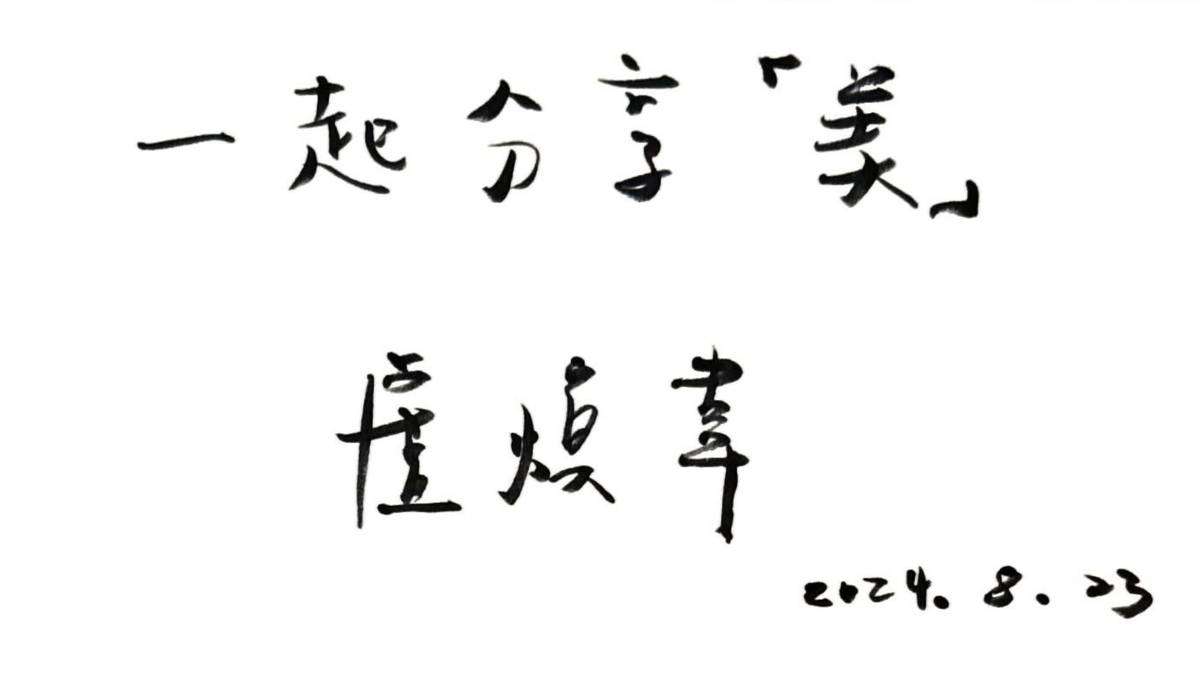 一起分享「美」
2024.8.23